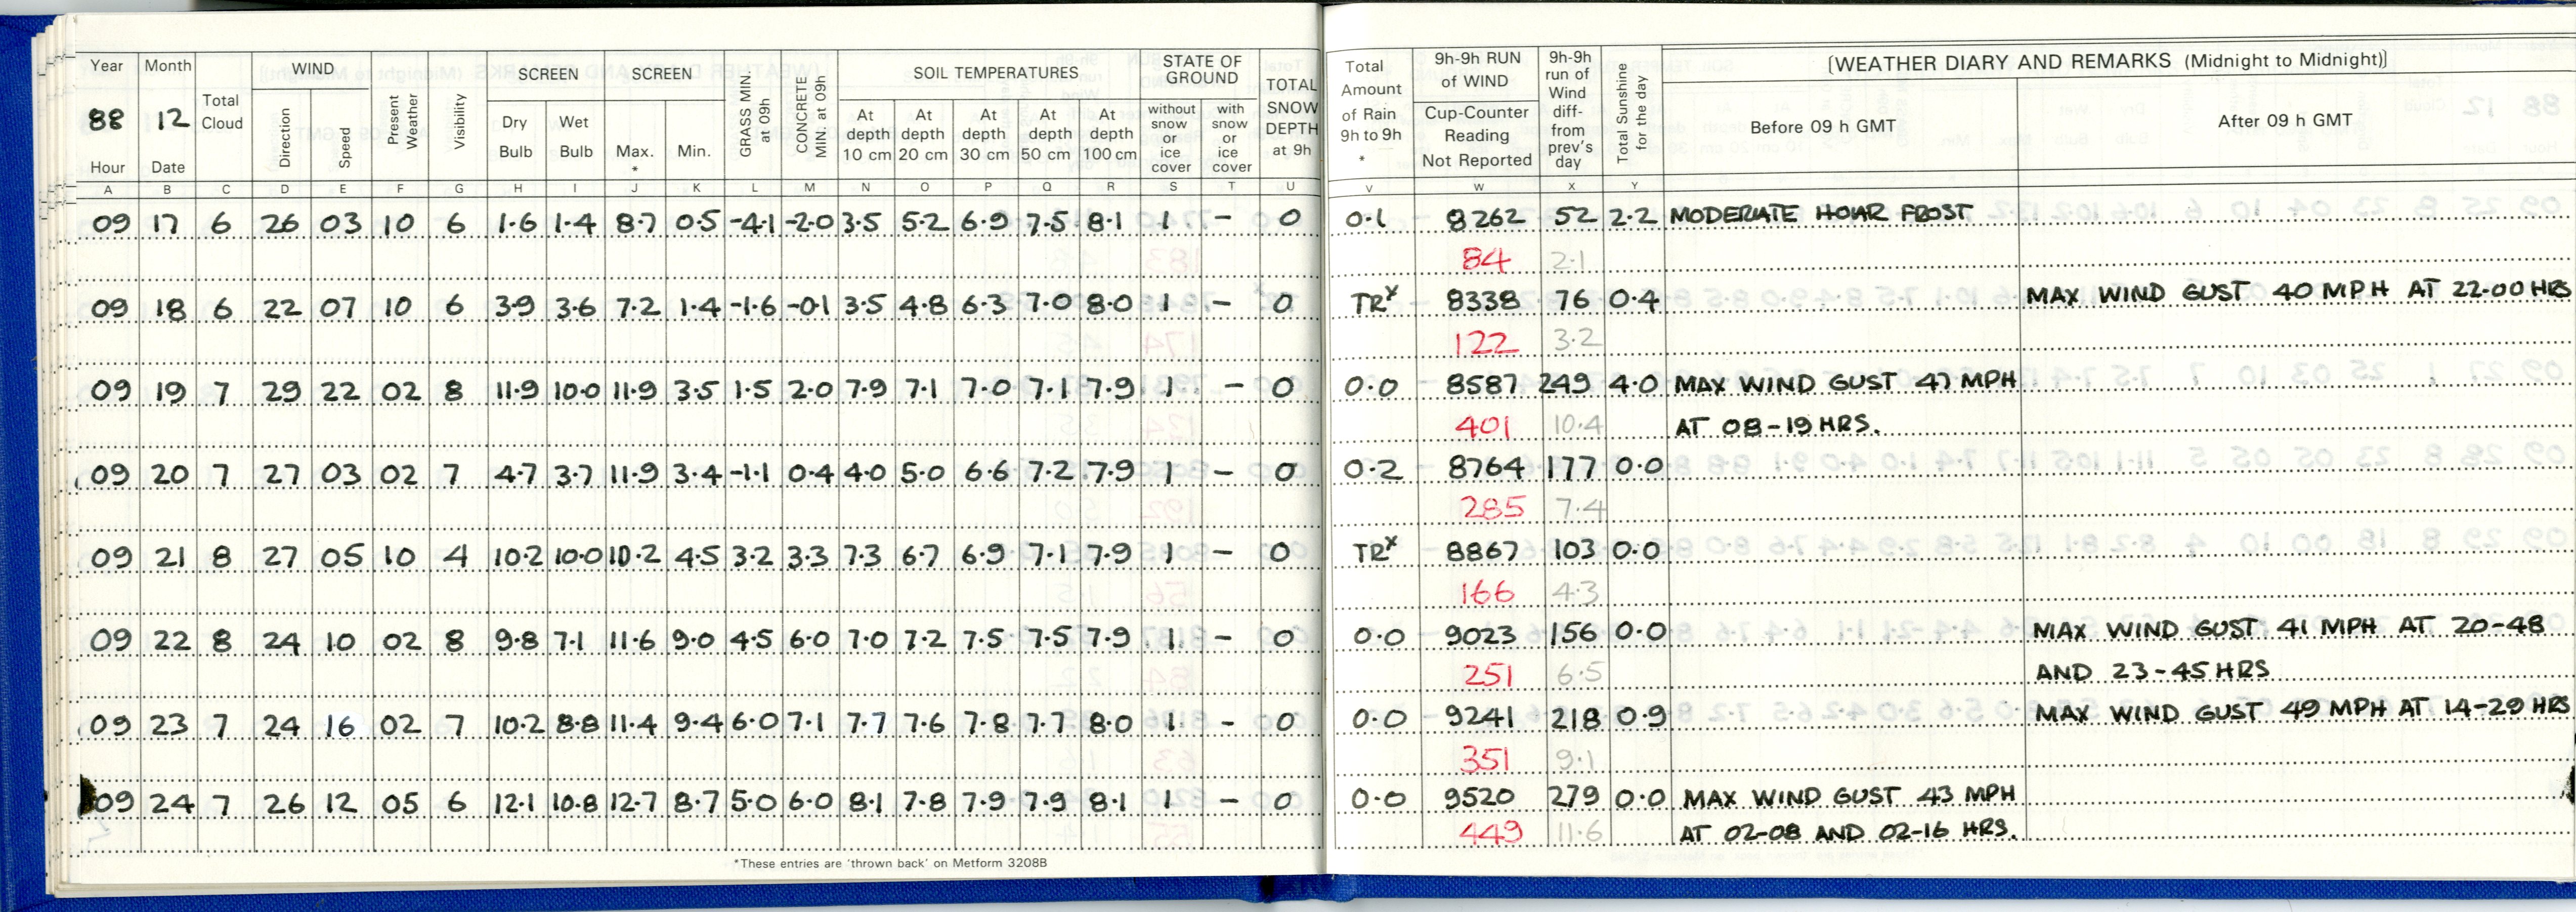 Year Month Total Cloud WIND Present Weather Visibility SCREEN SCREEN GRASS MIN. at 09h CONCRETE MIN. at 09h SOIL TEMPERATURES STATE OF GROUND TOTAL SNOW DEPTH at 9h
88 12 Direction Speed Dry Bulb Wet Bulb Max. * Min. At depth 10 cm At depth 20 cm At depth 30 cm At depth 50 cm At depth 100 cm without snow or ice cover with snow or ice cover
Hour Date
A B C D E F G H I J K L M N O P Q R S T U
09 17 6 26 03 10 6 1.6 1.4 8.7 0.5 -4.1 -2.0 3.5 5.2 6.9 7.5 8.1 1 - 0
09 18 6 22 07 10 6 3.9 3.6 7.2 1.4 -1.6 -0.1 3.5 4.8 6.3 7.0 8.0 1 - 0
09 19 7 29 22 02 8 11.9 10.0 11.9 3.5 1.5 2.0 7.9 7.1 7.0 7.1 7.9 1 - 0
09 20 7 27 03 02 7 4.7 3.7 11.9 3.4 -1.1 0.4 4.0 5.0 6.6 7.2 7.9 1 - 0
09 21 8 27 05 10 4 10.2 10.0 10.2 4.5 3.2 3.3 7.3 6.7 6.9 7.1 7.9 1 - 0
09 22 8 24 10 02 8 9.8 7.1 11.6 9.0 4.5 6.0 7.0 7.2 7.5 7.5 7.9 1 - 0
09 23 7 24 16 02 7 10.2 8.8 11.4 9.4 6.0 7.1 7.7 7.6 7.8 7.7 8.0 1 - 0
09 24 7 26 12 05 6 12.1 10.8 12.7 8.7 5.0 6.0 8.1 7.8 7.9 7.9 8.1 1 - 0
*These entries are 'thrown back' on Metform 3208B
Total Amount of Rain 9h to 9h * 9h-9h RUN of WIND Cup-Counter Reading Not Reported 9h-9h run of Wind diff- from prev's day Total Sunshine for the day [WEATHER DIARY AND REMARKS (Midnight to Midnight)]
Before 09 h GMT After 09 h GMT
V W X Y
0.1 8262 52 2.2 MODERATE HOAR FROST
84 2.1
TRx 8338 76 0.4 MAX WIND GUST 40 MPH AT 22-00 HRS
122 3.2
0.0 8587 249 4.0 MAX WIND GUST 47 MPH
401 10.4 AT 08-19 HRS.
0.2 8764 177 0.0
285 7.4
TRx 8867 103 0.0
166 4.3
0.0 9023 156 0.0 MAX WIND GUST 41 MPH AT 20-48
251 6.5 AND 23-45 HRS
0.0 9241 218 0.9 MAX WIND GUST 49 MPH AT 14-29 HRS
351 9.1
0.0 9520 279 0.0 MAX WIND GUST 43 MPH
449 11.6 AT 02-08 AND 02-16 HRS.